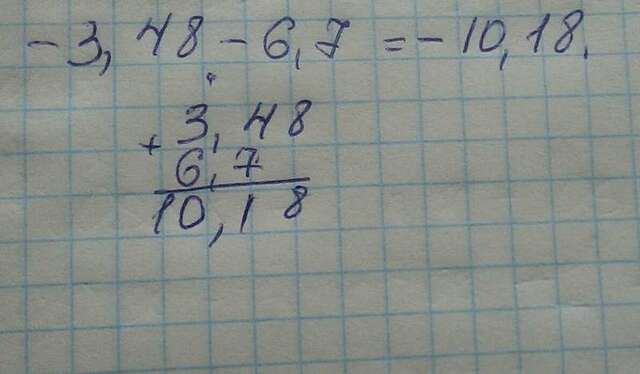 -3,48-6,7=-10,18.
+3,48
6,7
10,18